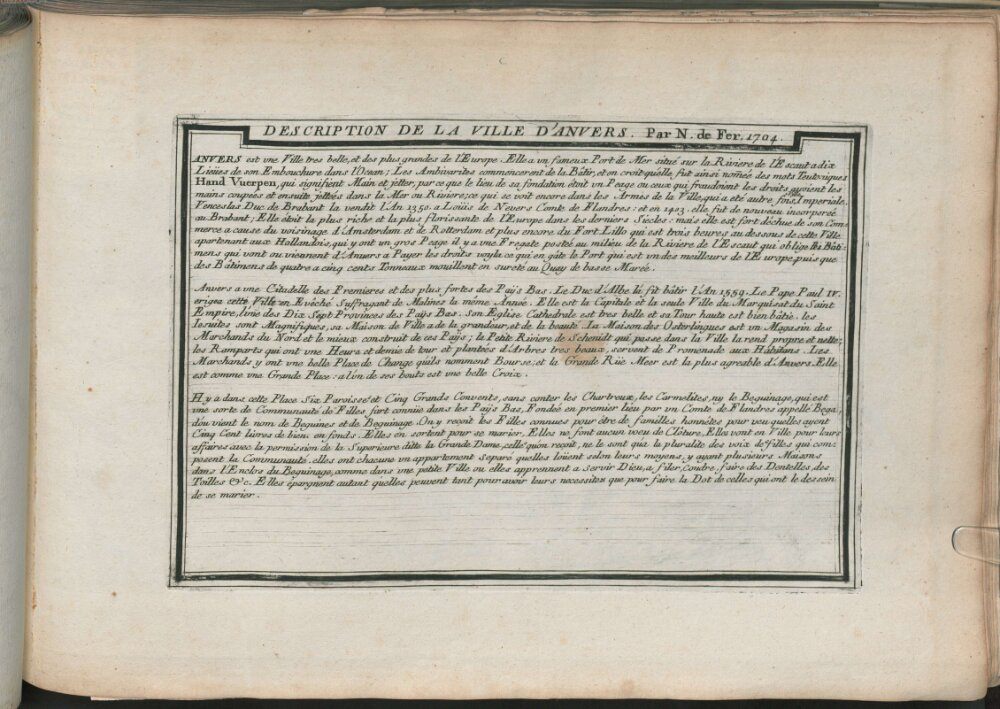 DESCRIPTION DE LA VILLE D'ANVERS. Par N. de Fer. 1704.
ANVERS est vne Ville tres belle, et des plus grandes de l'Europe. Elle a un fameux Port de Mer situé sur la Riviere de l'Escaut a dix
Lieües de son Embouchure dans l'Ocean; Les Ambivarites commencerent de la Bâtir, et on croit quelle fut ainsi nomée des mots Teutoniques
Hand Vuerpen, qui signifient Main et jetter, par ce que le lieu de sa fondation étoit vn Peage ou ceux qui fraudoient les droits avoient les
mains coupées et ensuite jettées dans la Mer ou Riviere; ce qui se voit encore dans les Armes de la Ville, qui a été autre fois Imperiale.
Venceslas Duc de Brabant la vendit l'An 1350. a Loüis de Nevers Comte de Flandres: et en 1403. elle fut de nouveau incorporée
au Brabant; Elle étoit la plus riche et la plus florissante de l'Europe dans les derniers Siécles: mais elle est fort déchue de son Com-
merce a cause du voisinage d'Amsterdam et de Rotterdam et plus encore du Fort Lillo qui est trois heures au dessous de cette Ville
apartenant aux Hollandois, qui y ont un gros Peage il y a vne Fregate postée au milieu de la Riviere de l'Escaut qui oblige les Bâti-
mens qui vont ou viennent d'Anvers a Payer les droits voyla ce qui en gâte le Port qui est vn des meilleurs de l'Europe, puis que
des Bâtimens de quatre a cinq cents Tonneaux mouillent en sureté au Quay de basse Marée.
Anvers a vne Citadelle des Premieres et des plus fortes des Païs Bas. Le Duc d'Albe la fit bâtir l'An 1559. Le Pape Paul IV.
erigea cette Ville en Evêché Suffragant de Malines la même Année. Elle est la Capitale et la seule Ville du Marquisat du Saint
Empire, l'une des Dix Sept Provinces des Païs Bas. son Eglise Cathedrale est tres belle et sa Tour haute est bien bâtie. les
Iesuites sont Magnifiques, sa Maison de Ville a de la grandeur, et de la beauté. La Maison des Osterlingues est vn Magasin des
Marchands du Nord et le mieux construit de ces Païs; la Petite Riviere de Schenidt qui passe dans la Ville la rend propre et nette;
les Ramparts qui ont vne Heure et demie de tour et plantées d'Arbres tres beaux, servent de Promenade aux Habitans. Les
Marchands y ont vne belle Place de Change qu'ils nomment Bourse; et la Grande Rüe Meer est la plus agreable d'Anvers. Elle
est comme vne Grande Place: a l'vn de ses bouts est vne belle Croix.
Il y a dans cette Place Six Paroisse et Cinq Grands Convents, sans conter les Chartreux, les Carmelites, ny le Beguinage, qui est
vne sorte de Communauté de Filles fort connüe dans les Païs Bas, Fondée en premier lieu par un Comte de Flandres appellé Bega,
d'ou vient le nom de Beguines et de Beguinage. On y reçoit les Filles connues pour être de familles honnêtes pour veu quelles ayent
Cinq Cent livres de bien en fonds. Elles en sortent pour se marier, Elles ne font aucun voeu de Clôture, Elles vont en Ville pour leurs
affaires avec la permission de la Superieure ditte la Grande Dame, celle qu'on reçoit ne le sont qu'a la pluralité des voix de filles qui com-
posent la Communauté. elles ont chacune vn appartement separé quelles loüent selon leurs moyens, y ayant plusieurs Maisons
dans l'Enclos du Beguinage, comme dans vne petite Ville ou elles apprennent a servir Dieu, a filer, coudre, faire des Dentelles, des
Toilles &c. Elles épargnent autant quelles peuvent tant pour avoir leurs necessites que pour faire la Dot de celles qui ont le dessein
de se marier.